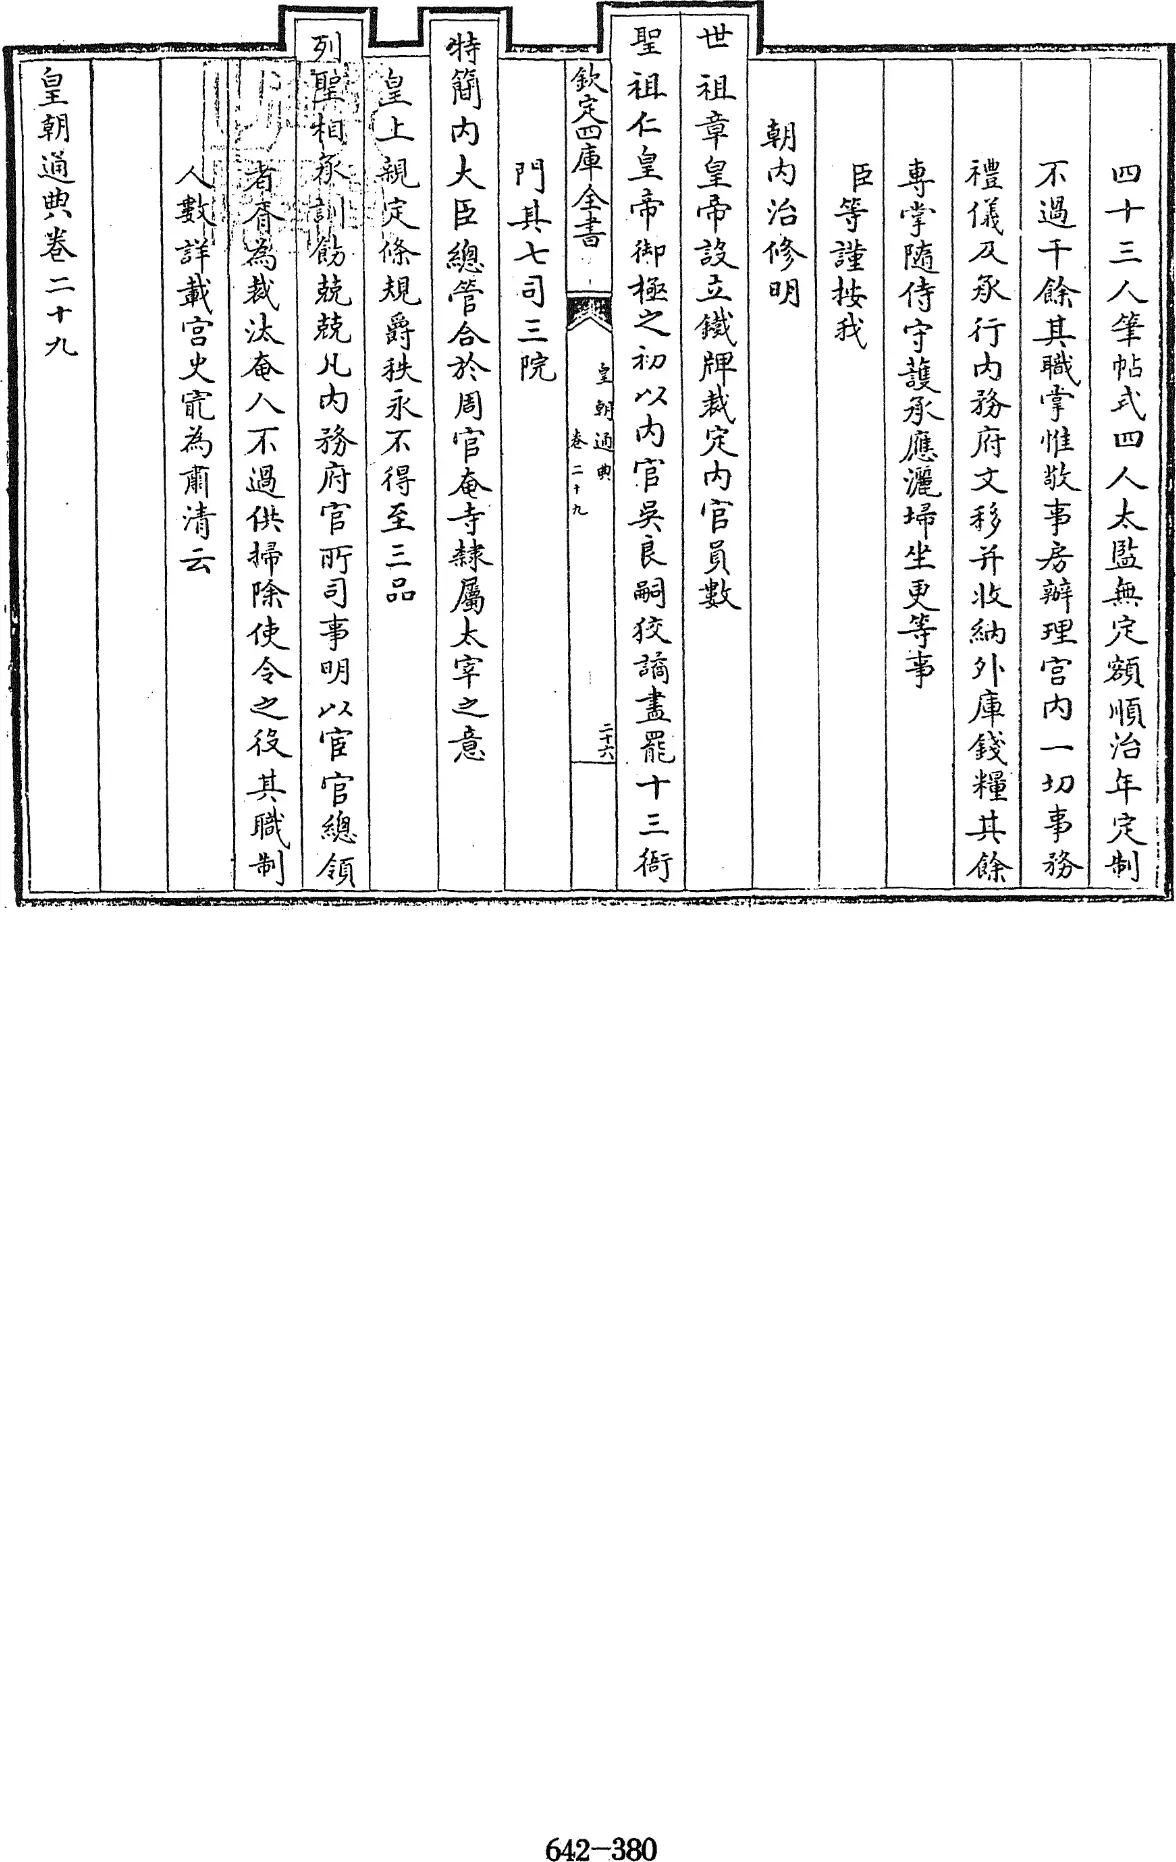 四十三人筆帖式四人太監無定額順治年定制
不過千餘其職掌惟敬事房辦理宫内一切事務
禮儀及承行内務府文移并收納外庫錢糧其餘
專掌隨侍守護承應灑埽坐更等事
臣等謹按我
朝内治修明
世祖章皇帝設立鐵牌裁定内官員數
聖祖仁皇帝御極之初以内官吳良嗣狡譎盡罷十三衙
欽定四庫全書
皇朝通典
卷二十九
二十六
門其七司三院
特簡内大臣總管合於周官奄寺隸屬太宰之意
皇上親定條規爵秩永不得至三品
列聖相承訓飭兢兢凡内務府官所司事明以宦官總領
者胥為裁汰奄人不過供掃除使令之役其職制
人數詳載宫史寔為肅清云
皇朝通典卷二十九
642-380